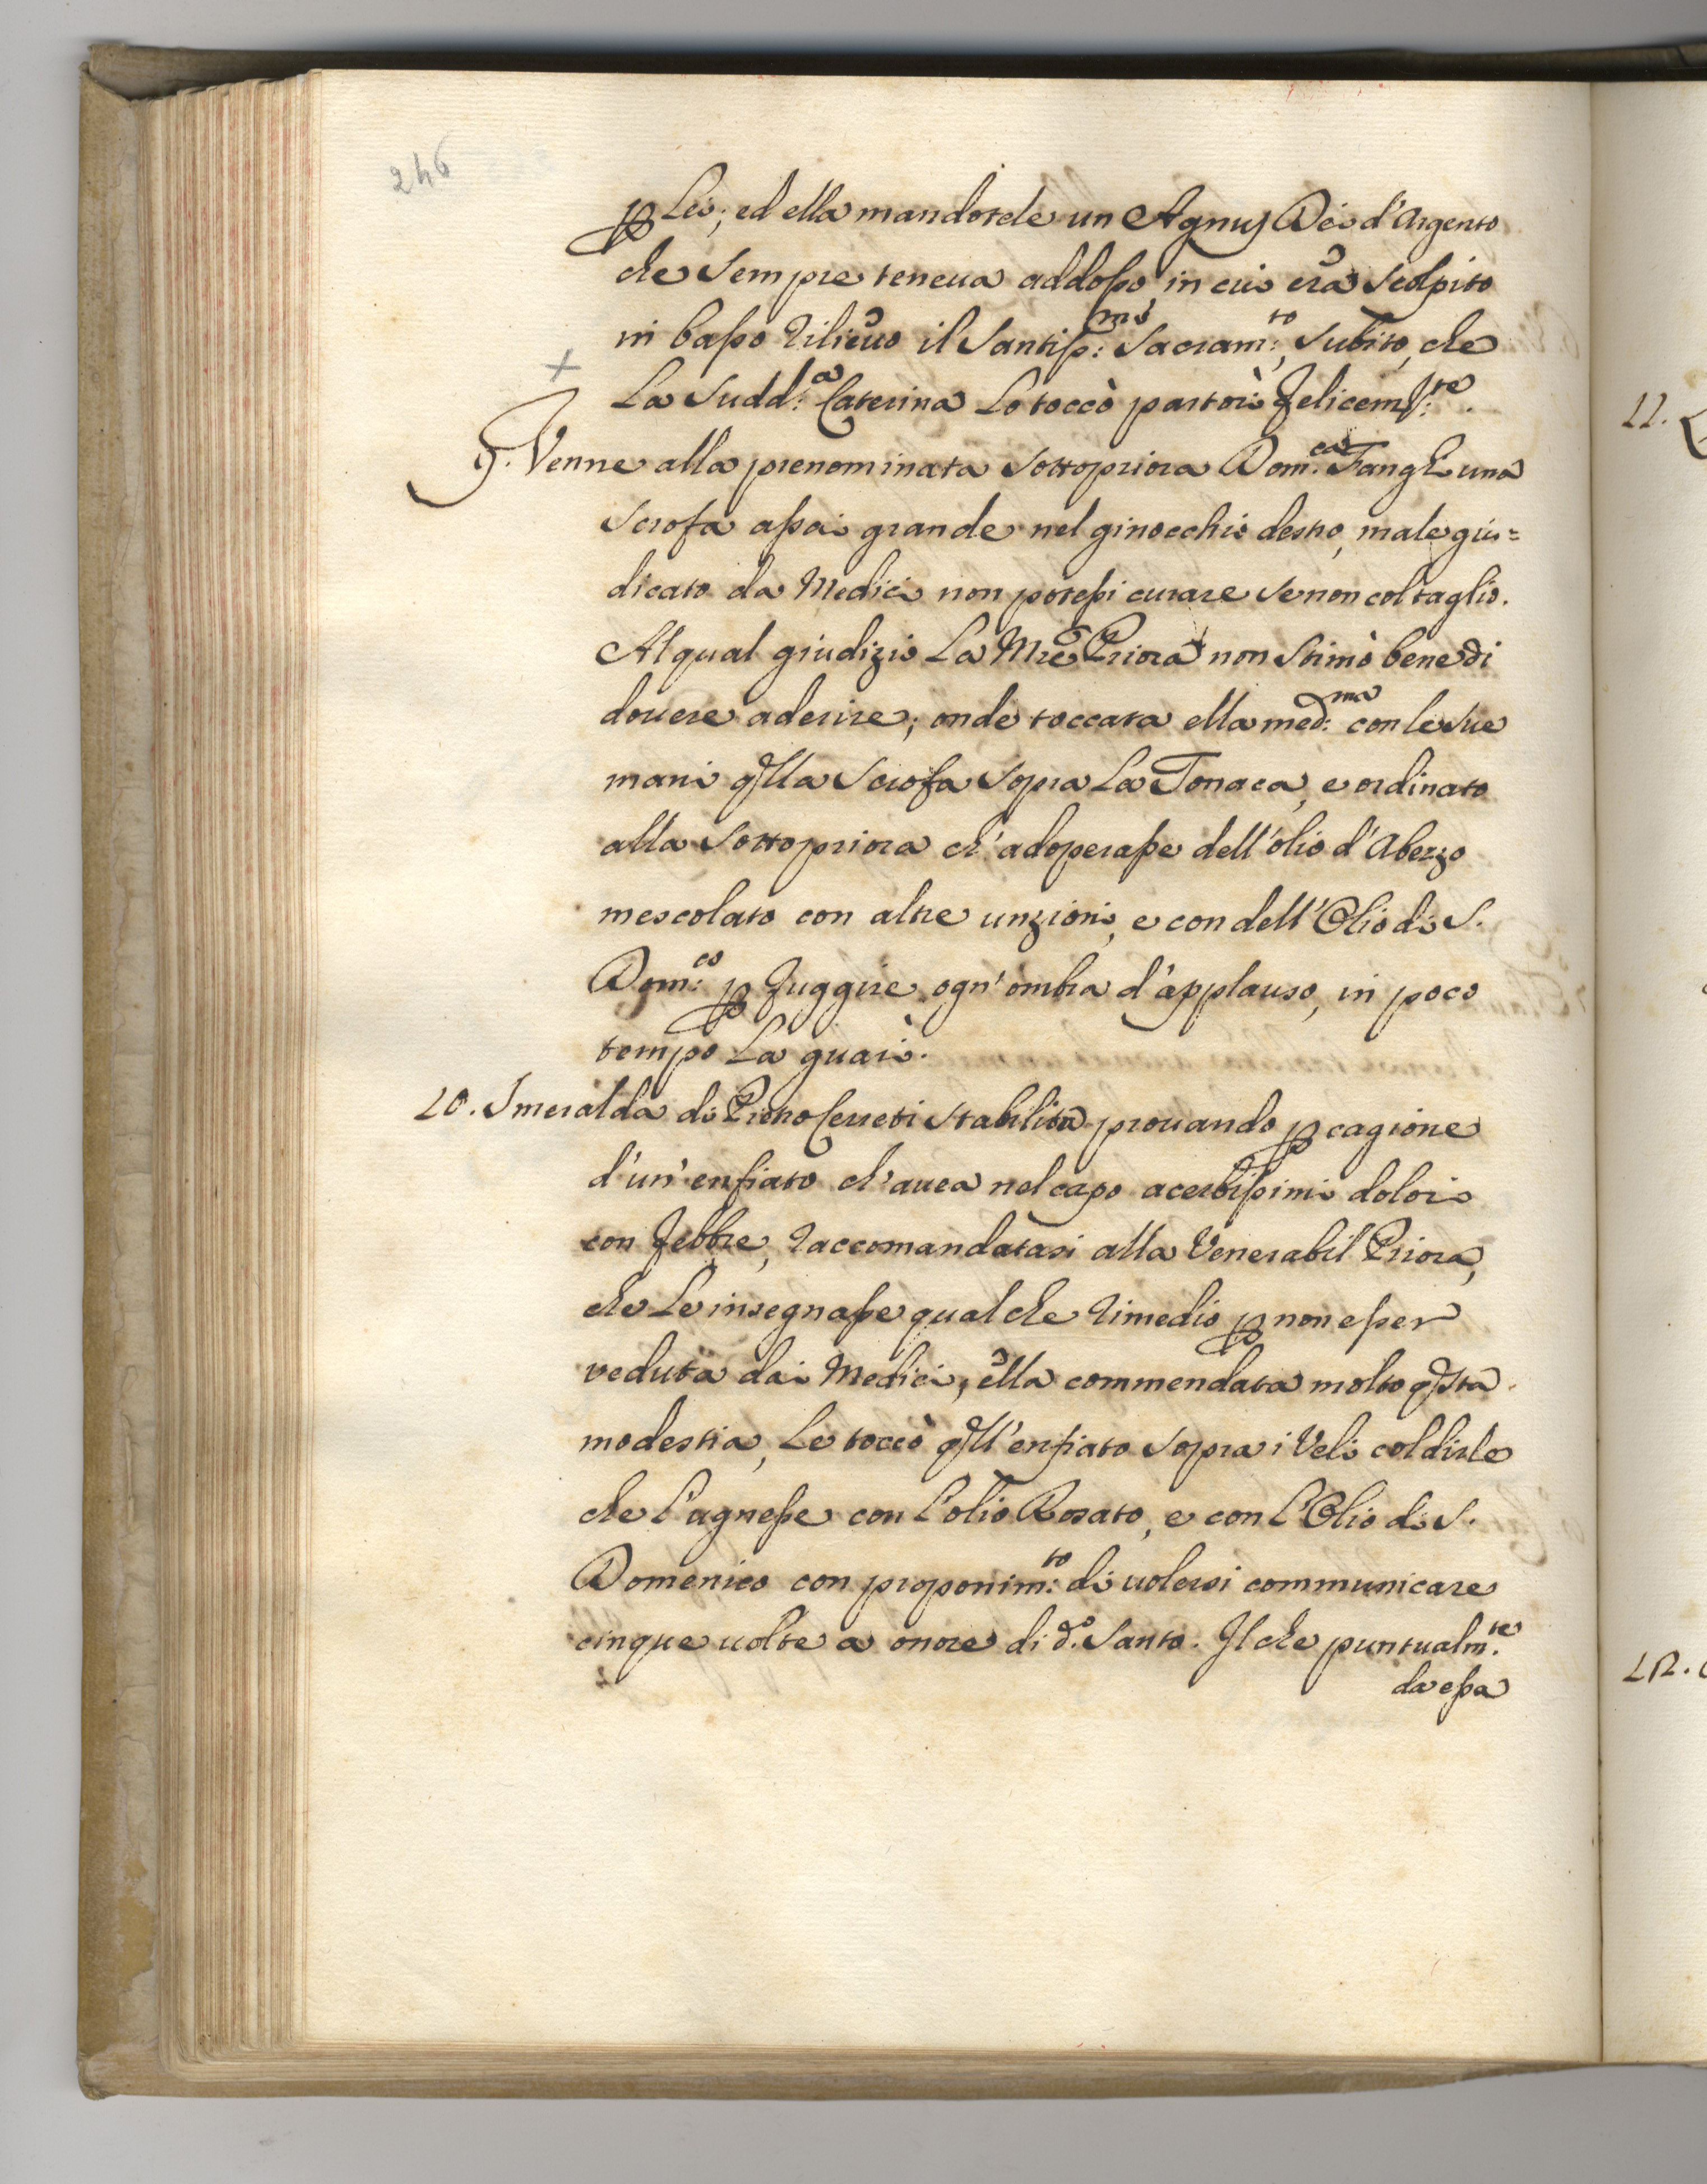 246
ꝑ Lei; ed ella mandotele un Agnus Dei d'Argento
che sempre teneua addosso, in cui era scolpito
in basso rilieuo il Santiss:mo Sacram:to, subito, che
La sudd:a Caterina Lo toccò partorì felicem:te.
9. Venne alla prenominata sottopriora Dom:ca Fangh una
scrofa assai grande nel ginocchio destro, male giu=
dicato da Medici non potersi curare se non col taglio.
Al qual giudizio La Mre Priora non stimò bene di
douere aderire; onde toccata ella med:ma con le sue
mani qlla scrofa sopra La Tonaca, e ordinato
alla sottopriora ch'adoperasse dell'olio d'Abezzo
mescolato con altre unzioni, e con dell'Olio di S.
Dom:co ꝑ fuggire ogn'ombra d'applauso, in poco
tempo La guarì.
10. Smeralda di Pietro Cerreti stabilita prouando ꝑ cagione
d'un'enfiato ch'auea nel capo acerbissimi dolori
con febbre, raccomandatasi alla Venerabil Priora,
che Le insegnasse qualche rimedio ꝑ non esser
veduta dai Medici, ella commendata molto qsta
modestia, Le toccò qll'enfiato sopra i Veli col dirle
che l'ugnesse con l'olio Rosato, e con l'Olio di S.
Domenico con proponim:to di uolersi communicare
cinque uolte a onore di d.o Santo. Il che puntualm.te
da essa
11.
12.